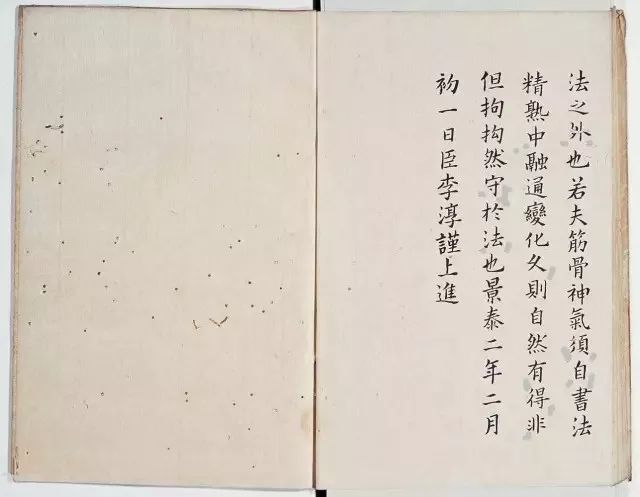 法之外也若夫筋骨神氣須自書法
精熟中融通變化久則自然有得非
但拘拘然守於法也景泰二年二月
初一日臣李淳謹上進